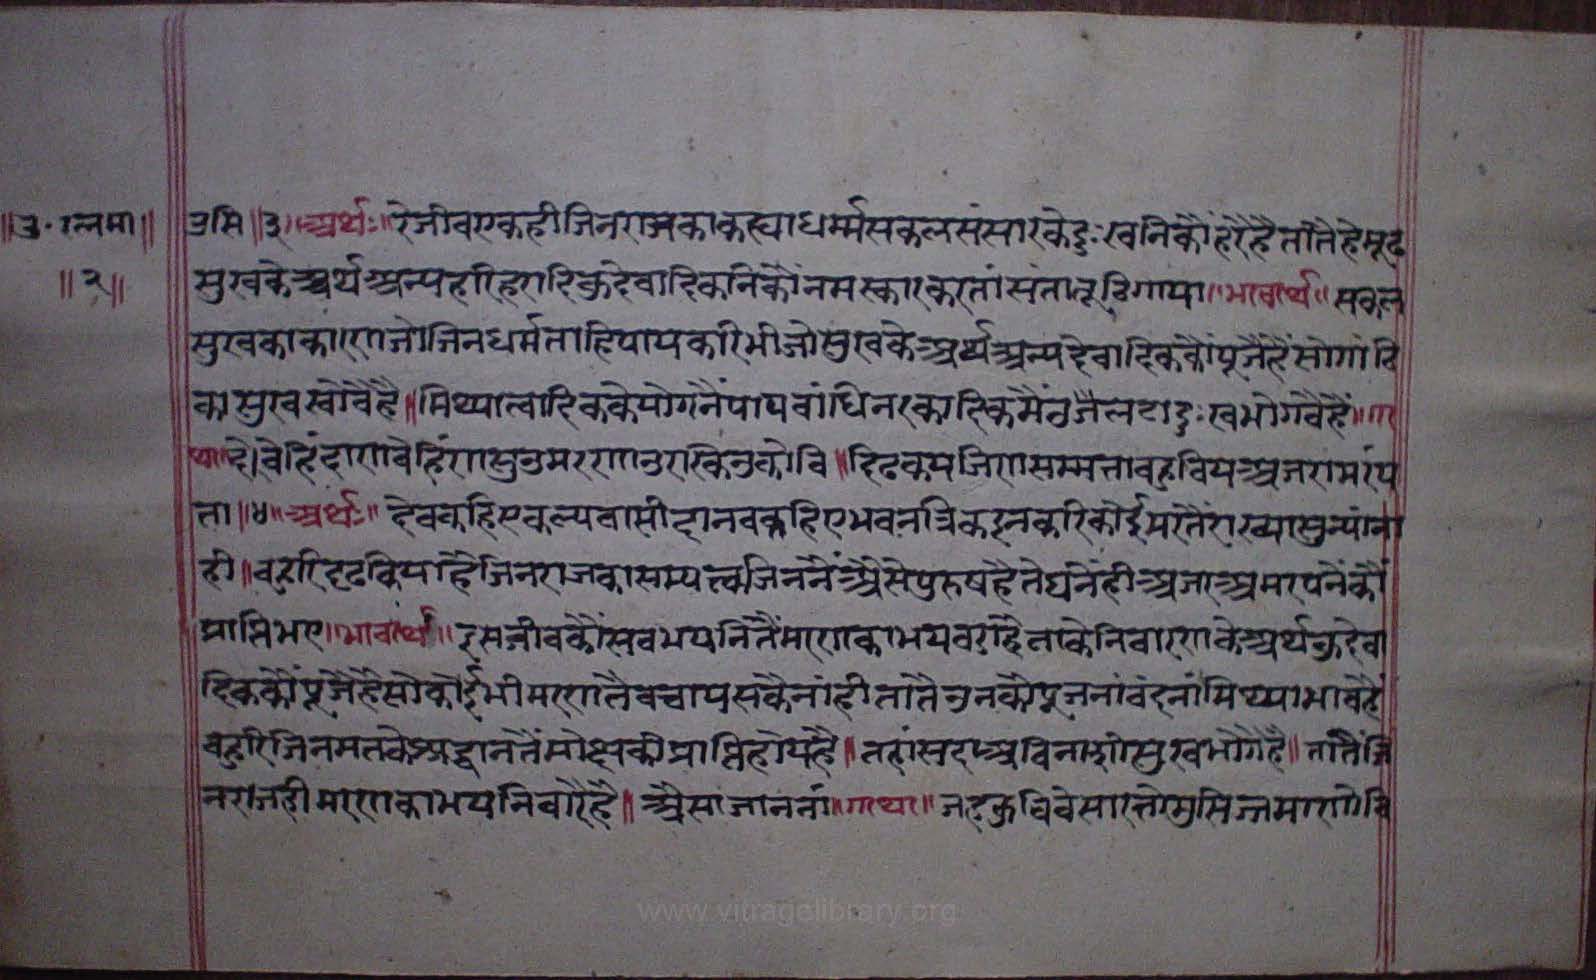 ॥उ॰रत्नमा॥
॥२॥
उसि॥३॥अर्थः॥रेजीवएकहीजिनराजकाकह्याधर्म्मसकलसंसारकेदुःखनिकौंहरैहैतातैहेमूढ
सुखकेअर्थअन्यहरिहरादिकुदेवादिकनिकौंनमस्कारकरतांसंतातूठिगाया॥भावार्थ॥सकल
सुखकाकारणजोजिनधर्मताहिपायकरिभीजोसुखकेअर्थिअन्यदेवादिककौंपूजैहैंसोगांठि
कासुखखोवैहै॥मिथ्यात्वादिककेयोगनैंपापबांधिनरकादिकमैंउजैलटादुःखभोगवैहैं॥गा
था॥देवेहिंदाणवेहिंणसुउमरणाउरख्किउकोवि॥दिढकयजिणसम्मत्ताबहुवियअजरामरंप
त्ता॥४॥अर्थः॥देवकहिएकल्पवासीदानवकहिएभवनत्रिकइनकरिकोईमरतैंराख्यासुन्यांना
ही॥बहुरिदृढकियाहैजिनराजकासम्यत्त्कजिननैंअैसेपुरुषहैतेघनेंहीअजरअमरपनेंकौं
प्राप्तिभए॥भावार्थ॥इसजीवकौंसबभयनितैंमरणकाभयबडाहैताकेनिवारणकेअर्थकुदेवा
दिककौंपूजैहैसोकोईभीमरणतैबचायसकैनांहीतातैउनकौपूजनांवंदनांमिथ्याभावहै
बहुरिजिनमतकेश्रद्धानतैंमोक्षकीप्राप्तिहोयहै॥तहांसदाअविनाशीसुखभोगैहै॥तातैंजि
नराजहीमरणकाभयनिवारैहै॥अैसाजाननां॥गाथा॥जहकुविवेसारत्तोमुसिज्जमाणोवि
www.vitragelibrary.org